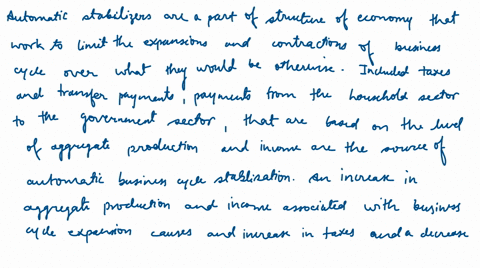 Automatic stabilizers are a part of structure of economy that
work to limit the expansions and contractions of business
cycle over what they would be otherwise. Included taxes
and transfer payments, payments from the household sector
to the government sector, that are based on the level
of aggregate production and income are the source of
automatic business cycle stablization. An increase in
aggregate production and income associated with business
cycle expansion causes and increase in taxes and a decrease